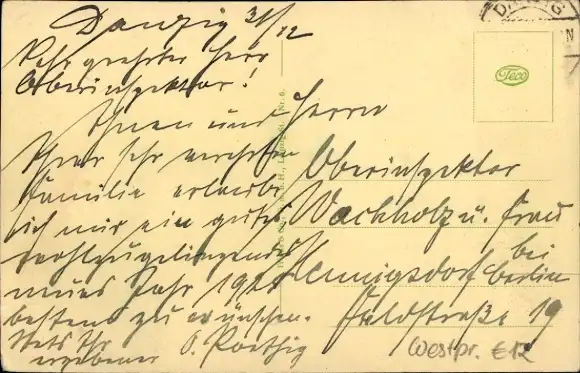 Danzig 31/12
Sehr geehrter Herr
Oberinspektor!
Ihnen und
Ihrer sehr verehrten
Familie erlaube
ich mir ein gutes
neues Jahr
bestens zu wünschen.
Stets Ihr
ergebener O.
Herrn
Oberinspektor
Wachholz u. Frau
Hennigsdorf bei Berlin
Feldstraße 19
Westpr. €12
Teco
Nr. 6.